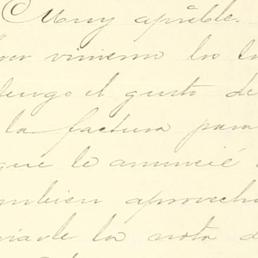 Muy apreble.
vinieron los
tengo el gusto de
la factura para
que le anuncié
aprovecho
la nota d